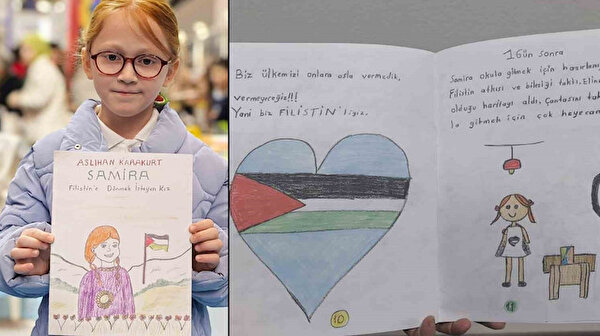 ASLIHAN KARAKURT
SAMİRA
Filistin'e Dönmek İsteyen Kız
Biz ülkemizi onlara asla vermedik,
vermeyeceğiz!!!
Yani biz FİLİSTİN'liyiz.
10
1 Gün sonra
Samira okula gitmek için hazırlanı
Filistin atkısı ve bilekliği taktı. Elin
olduğu haritayı aldı. Çantasını tak
gitmek için çok heyecan
11